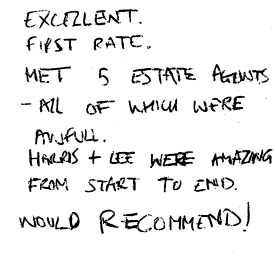 EXCELLENT.
FIRST RATE.
MET 5 ESTATE AGENTS
- ALL OF WHICH WERE
AWFULL.
HARRIS + LEE WERE AMAZING
FROM START TO END.
WOULD RECOMMEND!